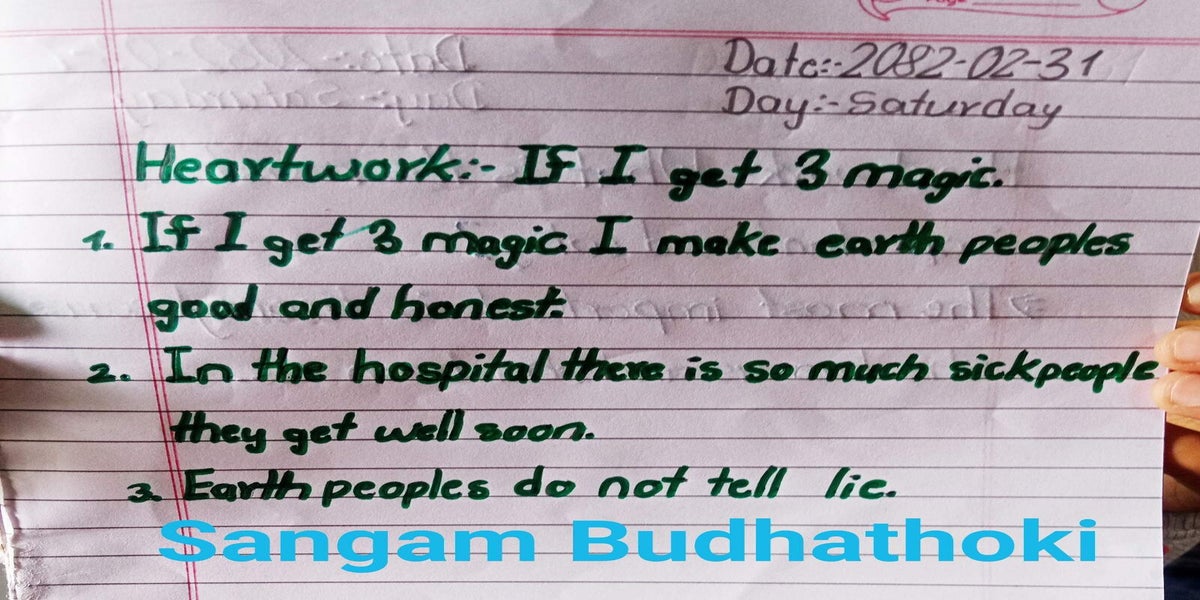 Date:-2082-02-31
Day:-Saturday
Heartwork:- If I get 3 magic.
1. If I get 3 magic I make earth peoples
good and honest.
2. In the hospital there is so much sick people
they get well soon.
3. Earth peoples do not tell lie.
Sangam Budhathoki